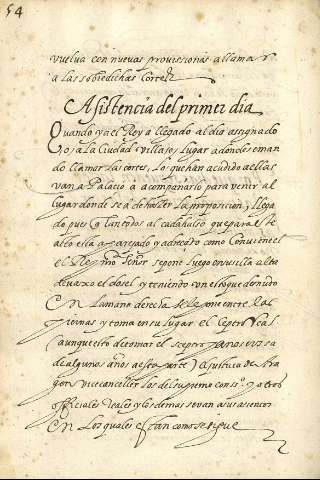 54
vuelva con nuevas provissiones a llamar
a las sobredichas Cortes
Asistencia del primer dia
Quando ya el Rey a llegado al dia asignado
a la Ciudad villa, o lugar adonde se man
do llamar las cortes, los que han acudido a ellas
van a Palacio a acompañarlo para venir al
lugar donde se a de hazer la proposicion, y llega
do pues con todos al cadahalso que para el
esta aparejado y adreçado como Conviene
el Rey nro Señor se pone luego en su silla alta
devaxo el dosel y teniendo un estoque desnudo
En la mano derecha se le pone entre las
piernas y toma en su lugar el Ceptro Real
(aunque esto de tomar el sceptro ya no se usa
de algunos años a esta parte) el Justicia de Ara
gon vicecanceller los del supremo consº. y otros
officiales reales y los demas se van a su asiento
En los quales estan como se sigue